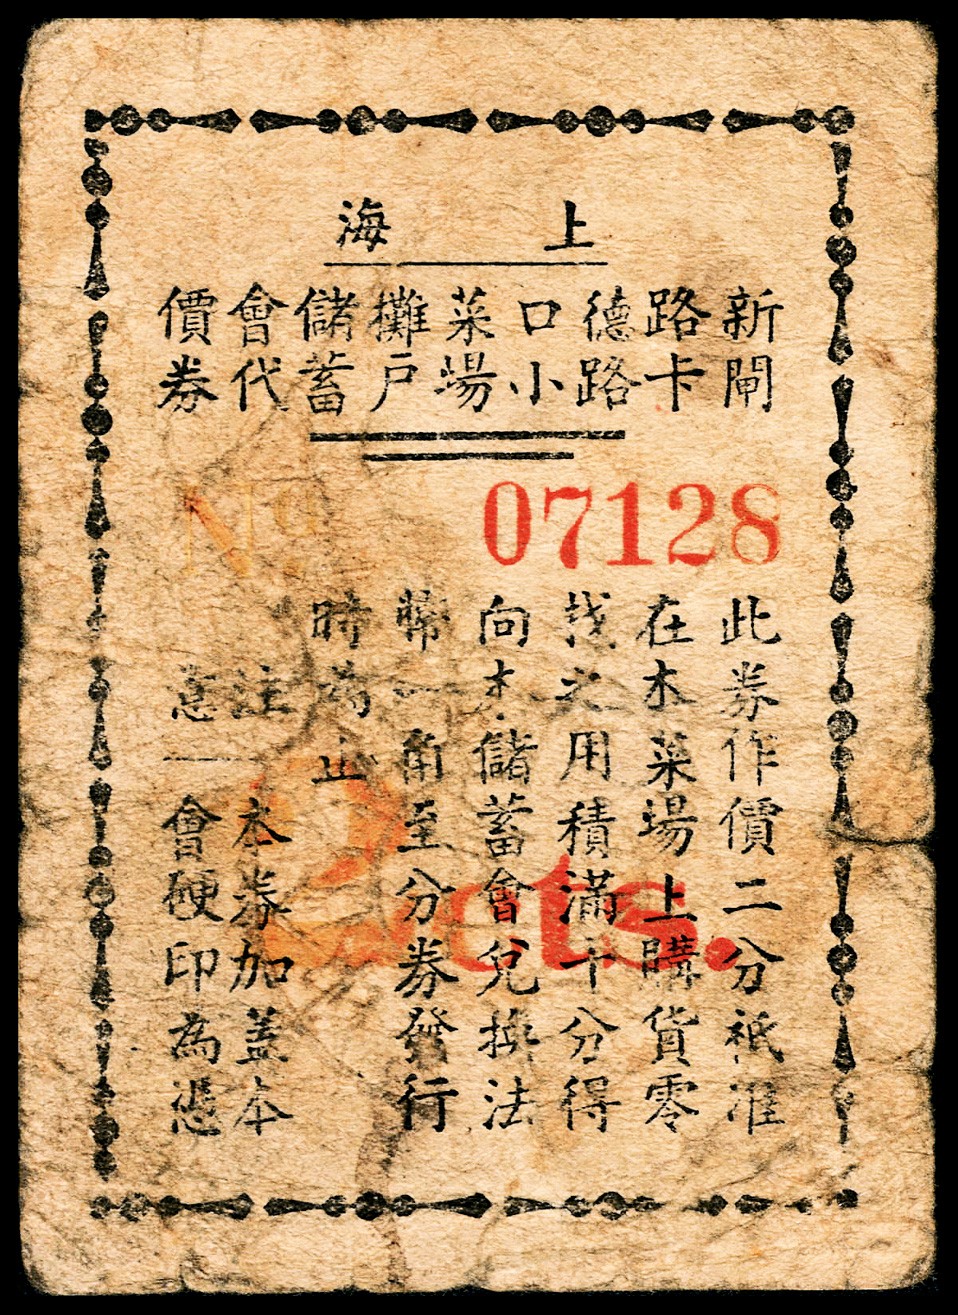 上海
新閘路卡德路口小菜場攤戶儲蓄會代價券
No 07128
此券作價二分祇准
在本菜場上購貨零
找之用積滿十分得
向本儲蓄會兌換法
幣一角至分券發行
時為止
注意
本券加蓋本
會硬印為憑
2cts.